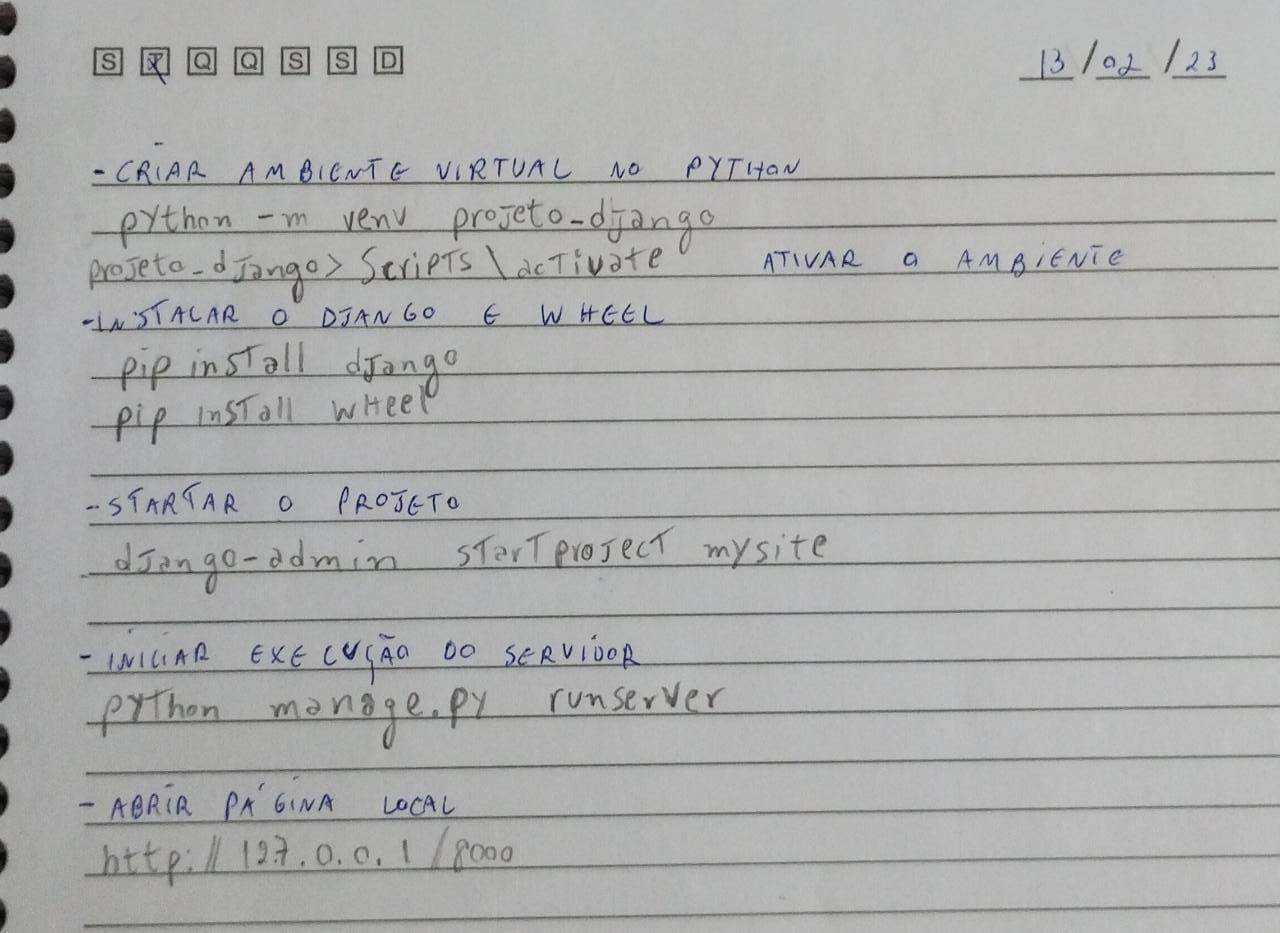 S T Q Q S S D 13/02/23
- CRIAR AMBIENTE VIRTUAL NO PYTHON
python -m venv projeto_django
projeto_django> Scripts\activate ATIVAR O AMBIENTE
- INSTALAR O DJANGO E WHEEL
pip install django
pip install wheel
- STARTAR O PROJETO
django-admin startproject mysite
- INICIAR EXECUÇÃO DO SERVIDOR
python manage.py runserver
- ABRIR PÁGINA LOCAL
http://127.0.0.1/8000